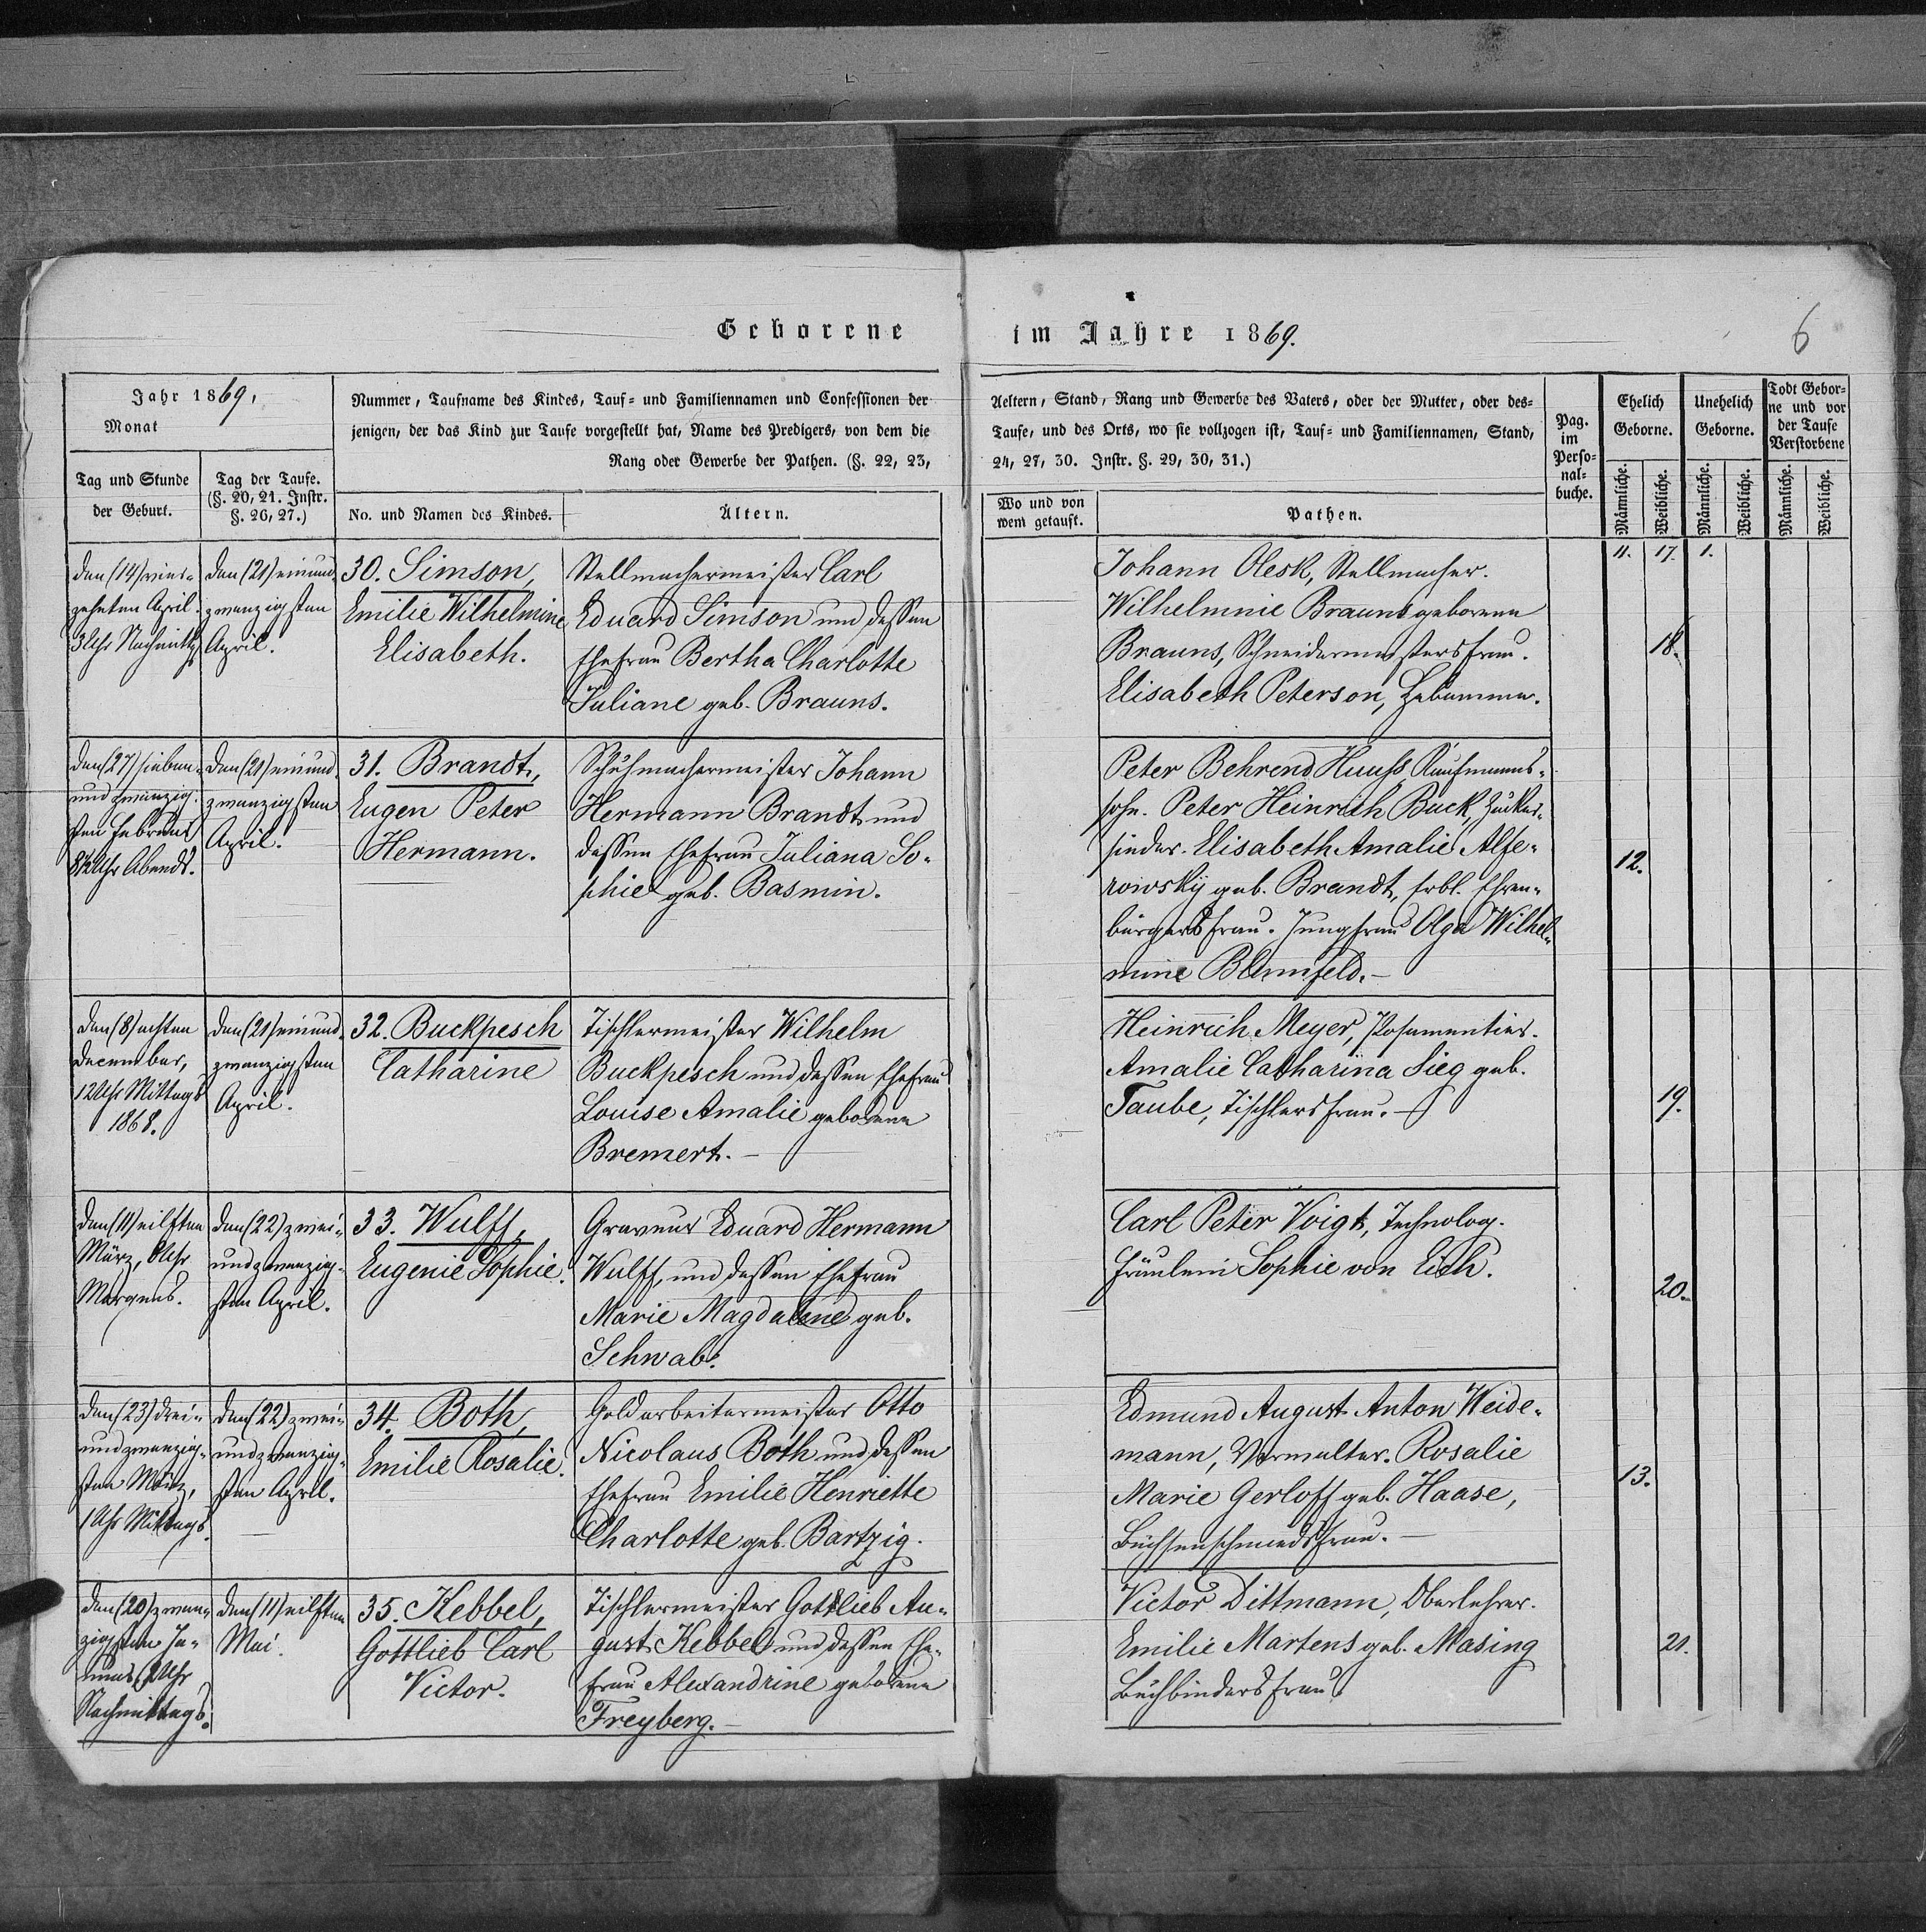 Geborene im Jahre 1869.
6
Jahr 1869,
Monat
Tag und Stunde
der Geburt.
Tag der Taufe.
(§. 20, 21. Instr.
§. 26, 27.)
Nummer, Taufname des Kindes, Tauf- und Familiennamen und Confessionen der
jenigen, der das Kind zur Taufe vorgestellt hat, Name des Predigers, von dem die
Rang oder Gewerbe der Pathen. (§. 22, 23,
No. und Namen des Kindes.
Ältern.
Aeltern, Stand, Rang und Gewerbe des Vaters, oder der Mutter, oder des-
Taufe, und des Orts, wo sie vollzogen ist, Tauf- und Familiennamen, Stand,
24, 27, 30. Instr. §. 29, 30, 31.)
Wo und von
wem getauft.
Pathen.
Pag.
im
Perso-
nal-
buche.
Ehelich
Geborne.
Unehelich
Geborne.
Todt Gebor-
ne und vor
der Taufe
Verstorbene
Männliche.
Weibliche.
Männliche.
Weibliche.
Männliche.
Weibliche.
11. 17. 1.
den (14) vier-
zehnten April.
3 Uhr Nachmittgs
den (21) einund-
zwanzigsten
April.
30. Simson,
Emilie Wilhelmine
Elisabeth.
Stellmachermeister Carl
Eduard Simson und dessen
Ehefrau Bertha Charlotte
Juliane geb. Brauns.
Johann Olesk, Stellmacher.
Wilhelmine Brauns geborene
Brauns, Schneidermeistersfrau.
Elisabeth Peterson, Hebamme.
18.
den (27) sieben-
und zwanzig-
sten Februar,
8½ Uhr Abends.
den (21) einund-
zwanzigsten
April.
31. Brandt,
Eugen Peter
Hermann.
Schuhmachermeister Johann
Hermann Brandt und
dessen Ehefrau Juliana So-
phie geb. Basmin.
Peter Behrend Huuss, Kaufmanns-
sohn. Peter Heinrich Buck, Zucker-
sieder. Elisabeth Amalie Alfe-
rowsky geb. Brandt, Erbl. Ehren-
bürgersfrau. Jungfrau Olga Wilhel-
mine Blumfeld.
12.
den (8) achten
December,
12 Uhr Mittags
1868.
den (21) einund-
zwanzigsten
April.
32. Buckpesch
Catharine
Tischlermeister Wilhelm
Buckpesch und dessen Ehefrau
Louise Amalie geborene
Bremert.
Heinrich Meyer, Posamentier.
Amalie Catharina Sieg geb.
Taube, Tischlersfrau.
19.
den (11) eilften
März, Uhr
Morgens.
den (22) zwei-
undzwanzig-
sten April.
33. Wulff,
Eugenie Sophie.
Graveur Eduard Hermann
Wulff, und dessen Ehefrau
Marie Magdalene geb.
Schwab.
Carl Peter Voigt, Technolog.
Fräulein Sophie von Eich.
20.
den (23) drei-
undzwanzig-
sten März,
1 Uhr Mittags.
den (22) zwei-
undzwanzig-
sten April.
34. Both,
Emilie Rosalie.
Goldarbeitermeister Otto
Nicolaus Both und dessen
Ehefrau Emilie Henriette
Charlotte geb. Bartzig.
Edmund August Anton Weide-
mann, Verwalter. Rosalie
Marie Gerloff geb. Haase,
Büchsenschmiedsfrau.
13.
den (20) zwan-
zigsten Ja-
nuar, Uhr
Nachmittags.
den (11) eilften
Mai.
35. Kebbel,
Gottlieb Carl
Victor.
Tischlermeister Gottlieb Au-
gust Kebbel und dessen Ehe-
frau Alexandrine geborene
Freyberg.
Victor Dittmann, Oberlehrer.
Emilie Martens geb. Masing
Buchbindersfrau.
21.